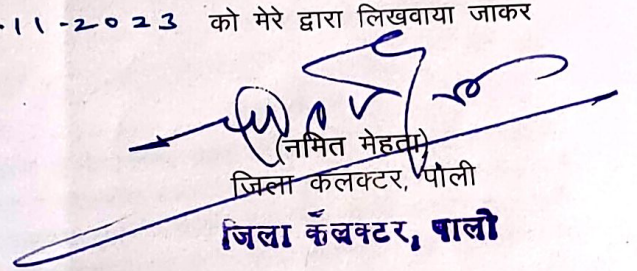 11-2023 को मेरे द्वारा लिखवाया जाकर
(नमित मेहता)
जिला कलक्टर, पाली
जिला कॅलक्टर, पाली